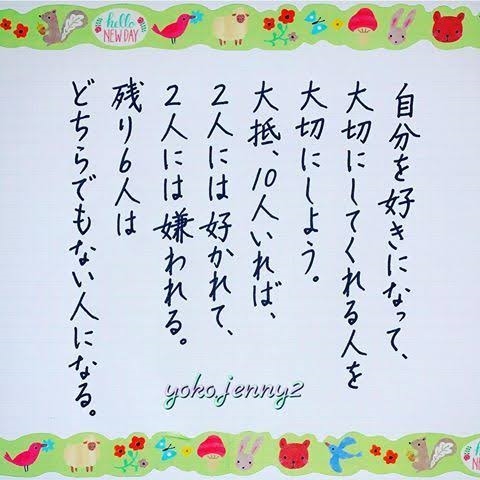 hello
NEW DAY
自分を好きになって、
大切にしてくれる人を
大切にしよう。
大抵、10人いれば、
2人には好かれて、
2人には嫌われる。
残り6人は
どちらでもない人になる。
yoko.jenny2